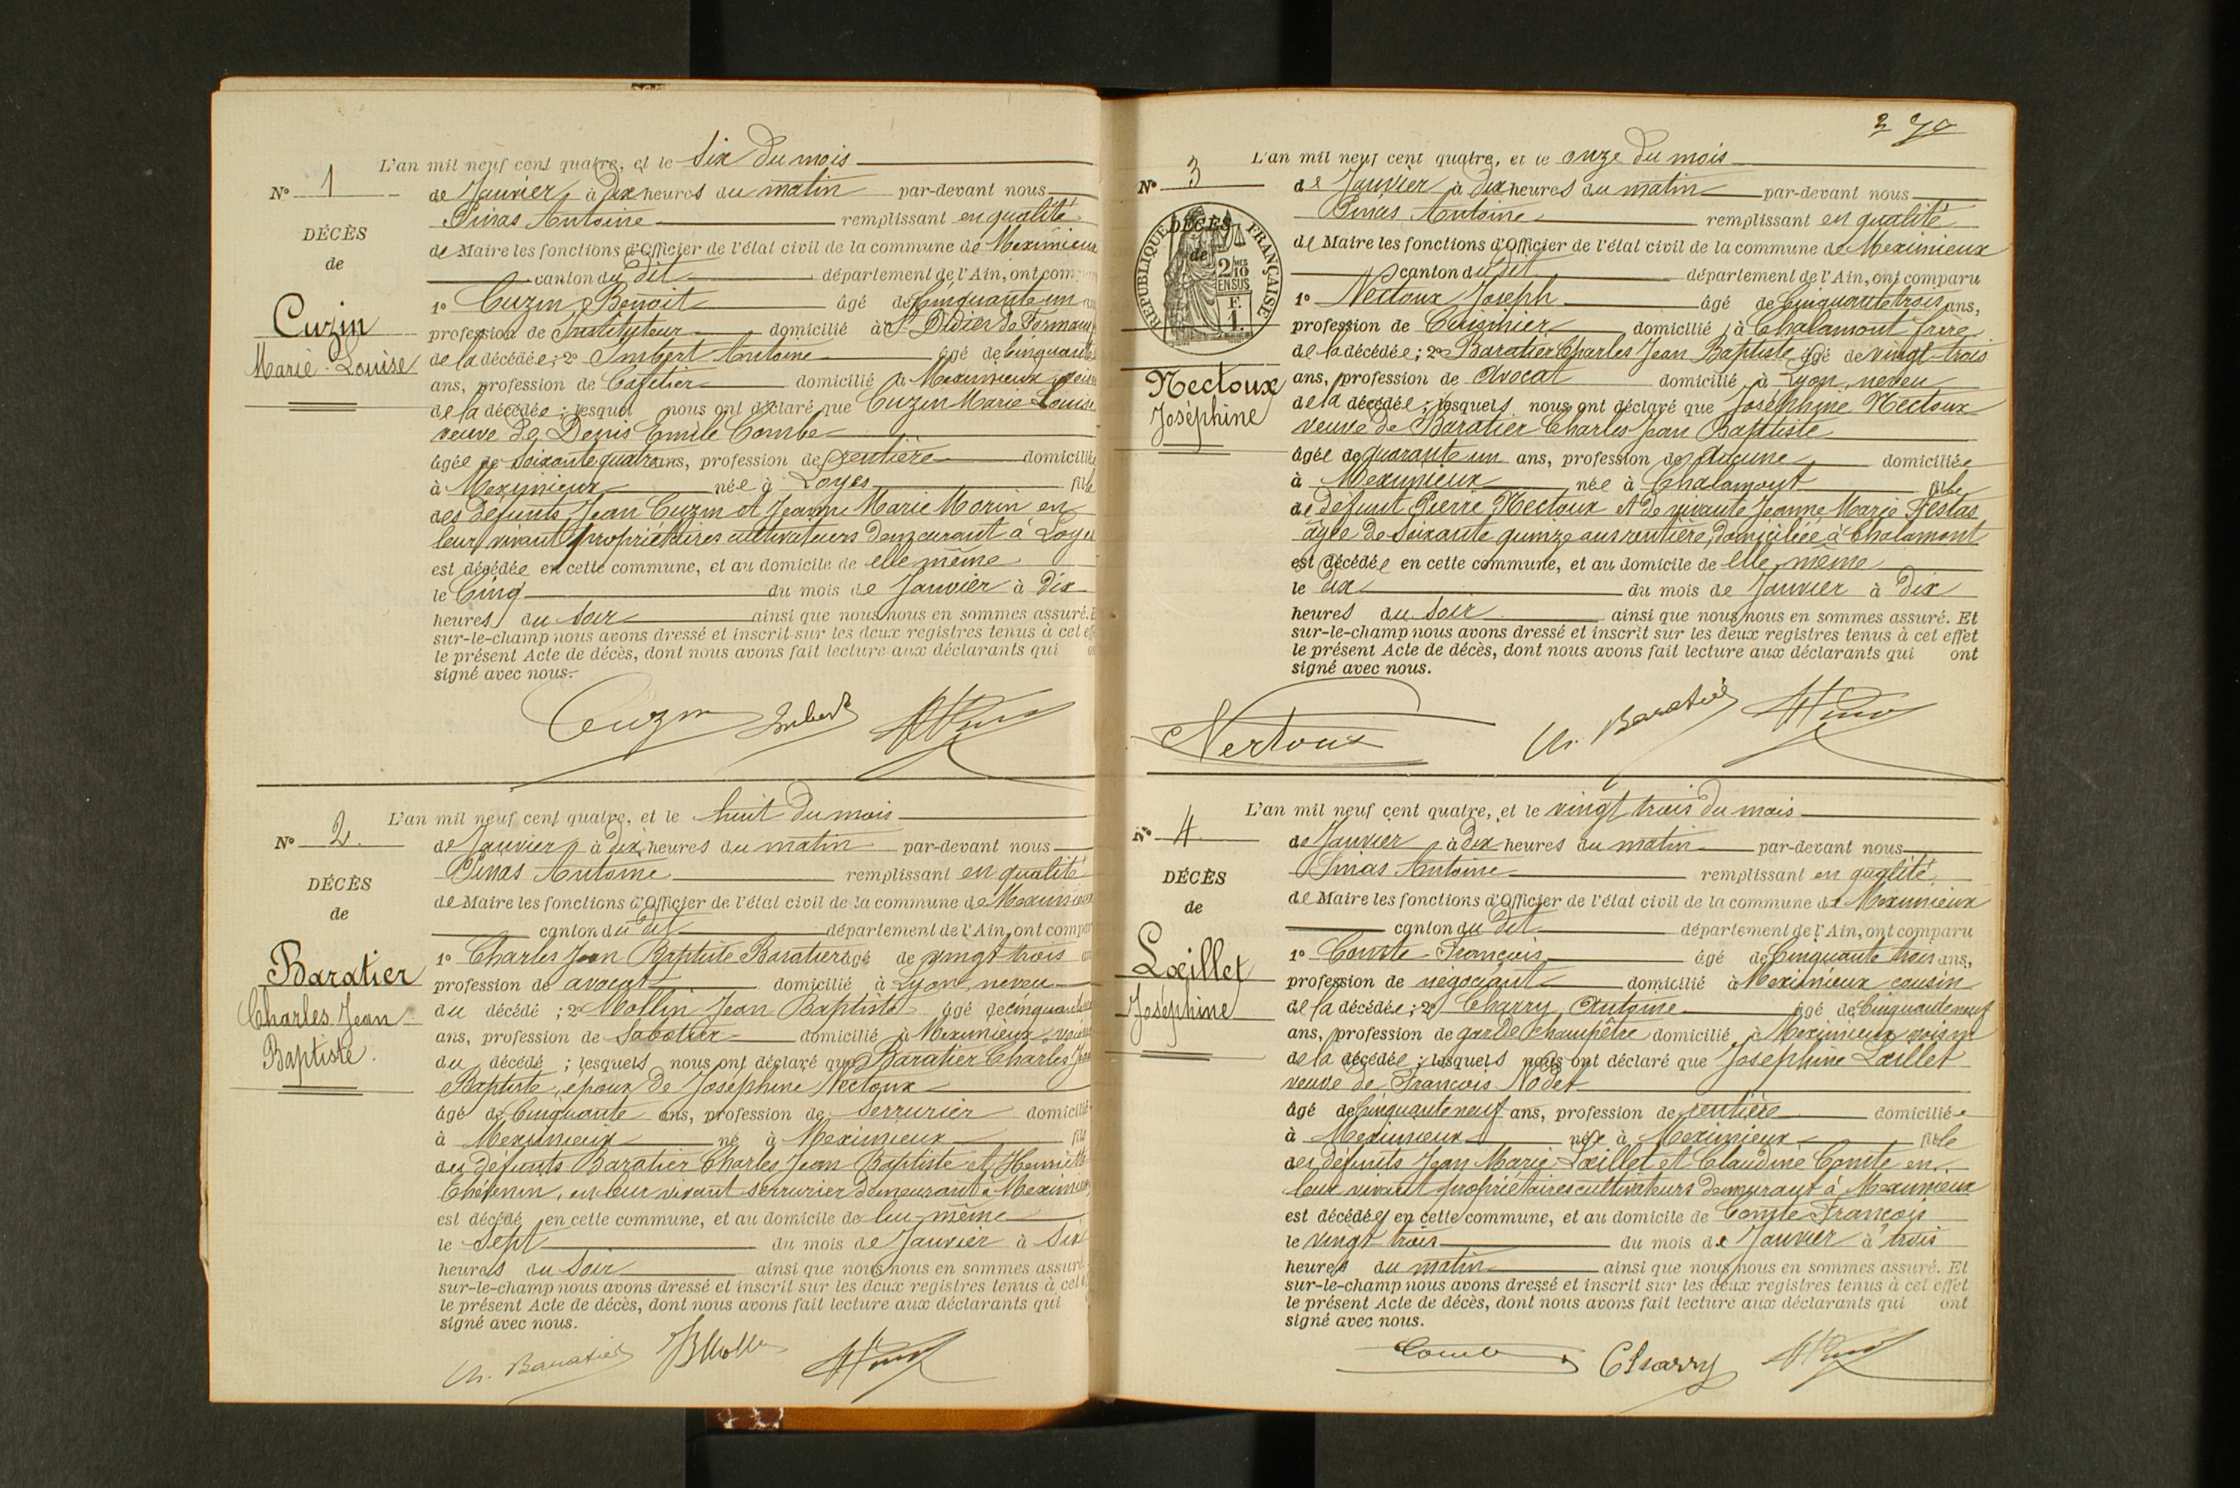 L'an mil neuf cent quatre, et le Six du mois
N° 1 de Janvier à dix heures du matin par-devant nous
Pinas Antoine remplissant en qualité
DÉCÈS
de Maire les fonctions d'Officier de l'état civil de la commune de Meximieux
de
canton du dit département de l'Ain, ont com
1° Cuzin Benoit âgé de Cinquante un
Cuzin
profession de Instituteur domicilié à St Didier de Formans
Marie-Louise
de la décédée; 2° Imbert Antoine âgé de Cinquante
ans, profession de Cafetier domicilié à Meximieux
de la décédée; lesquels nous ont déclaré que Cuzin Marie Louise
veuve de Denis Emile Combe
âgée de Soixante quatre ans, profession de rentière domiciliée
à Meximieux née à Loyes fille
des défunts Jean Cuzin et Jeanne Marie Morin en
leur vivant propriétaires cultivateurs demeurant à Loyes
est décédée en cette commune, et au domicile de elle même
le Cinq du mois de Janvier à dix
heures du Soir ainsi que nous nous en sommes assuré.
sur-le-champ nous avons dressé et inscrit sur les deux registres tenus à cet
le présent Acte de décès, dont nous avons fait lecture aux déclarants qui
signé avec nous.
Cuzin Imbert
L'an mil neuf cent quatre, et le huit du mois
N° 2 de Janvier à dix heures du matin par-devant nous
Pinas Antoine remplissant en qualité
DÉCÈS
de Maire les fonctions d'Officier de l'état civil de la commune de Meximieux
de
canton du dit département de l'Ain, ont compar
1° Charles Jean Baptiste Baratier âgé de vingt trois
Baratier
profession de avocat domicilié à Lyon, neveu
Charles Jean
du décédé; 2° Mollin Jean Baptiste âgé de cinquante
ans, profession de Sabotier domicilié à Meximieux
Baptiste.
du décédé; lesquels nous ont déclaré que Baratier Charles Jean
Baptiste, époux de Joséphine Nectoux
âgé de Cinquante ans, profession de Serrurier domicilié
à Meximieux né à Meximieux fils
des défunts Baratier Charles Jean Baptiste et Henriette
en leur vivant serrurier demeurant à Meximieux
est décédé en cette commune, et au domicile de lui-même
le Sept du mois de Janvier à Six
heures du Soir ainsi que nous nous en sommes assuré
sur-le-champ nous avons dressé et inscrit sur les deux registres tenus à cet
le présent Acte de décès, dont nous avons fait lecture aux déclarants qui
signé avec nous.
Ch. Baratier JBMollin
L'an mil neuf cent quatre, et le onze du mois
N° 3 de Janvier à dix heures du matin par-devant nous
Pinas Antoine remplissant en qualité
DÉCÈS
de
RÉPUBLIQUE FRANÇAISE
2/10 MES
EN SUS
F.
1.
de Maire les fonctions d'Officier de l'état civil de la commune de Meximieux
canton du dit département de l'Ain, ont comparu
1° Nectoux Joseph âgé de Cinquante trois ans,
profession de Cuisinier domicilié à Chalamont frère
de la décédée; 2° Baratier Charles Jean Baptiste âgé de vingt-trois
Nectoux
ans, profession de Avocat domicilié à Lyon, neveu
Joséphine
de la décédée; lesquels nous ont déclaré que Joséphine Nectoux
veuve de Baratier Charles Jean Baptiste
âgée de quarante un ans, profession de Aucune domiciliée
à Meximieux née à Chalamont fille
de défunt Pierre Nectoux et de vivante Jeanne Marie Festas
âgée de soixante quinze ans rentière, domiciliée à Chalamont
est décédée en cette commune, et au domicile de elle même
le dix du mois de Janvier à Dix
heures du Soir ainsi que nous nous en sommes assuré. Et
sur-le-champ nous avons dressé et inscrit sur les deux registres tenus à cet effet
le présent Acte de décès, dont nous avons fait lecture aux déclarants qui ont
signé avec nous.
Nectoux Ch. Baratier
L'an mil neuf cent quatre, et le vingt trois du mois
N° 4 de Janvier à dix heures du matin par-devant nous
Pinas Antoine remplissant en qualité
DÉCÈS
de Maire les fonctions d'Officier de l'état civil de la commune de Meximieux
de
canton du dit département de l'Ain, ont comparu
1° Comte François âgé de Cinquante trois ans,
Lœillet
profession de négociant domicilié à Meximieux cousin
Joséphine
de la décédée; 2° Charry Antoine âgé de Cinquante neuf
ans, profession de garde champêtre domicilié à Meximieux voisin
de la décédée; lesquels nous ont déclaré que Joséphine Lœillet
veuve de François Nodet
âgé de Cinquante neuf ans, profession de rentière domiciliée
à Meximieux née à Meximieux fille
des défunts Jean Marie Lœillet et Claudine Comte en
leur vivant propriétaires cultivateurs demeurant à Meximieux
est décédée en cette commune, et au domicile de Comte François
le vingt trois du mois de Janvier à trois
heures du matin ainsi que nous nous en sommes assuré. Et
sur-le-champ nous avons dressé et inscrit sur les deux registres tenus à cet effet
le présent Acte de décès, dont nous avons fait lecture aux déclarants qui ont
signé avec nous.
Comte Charry